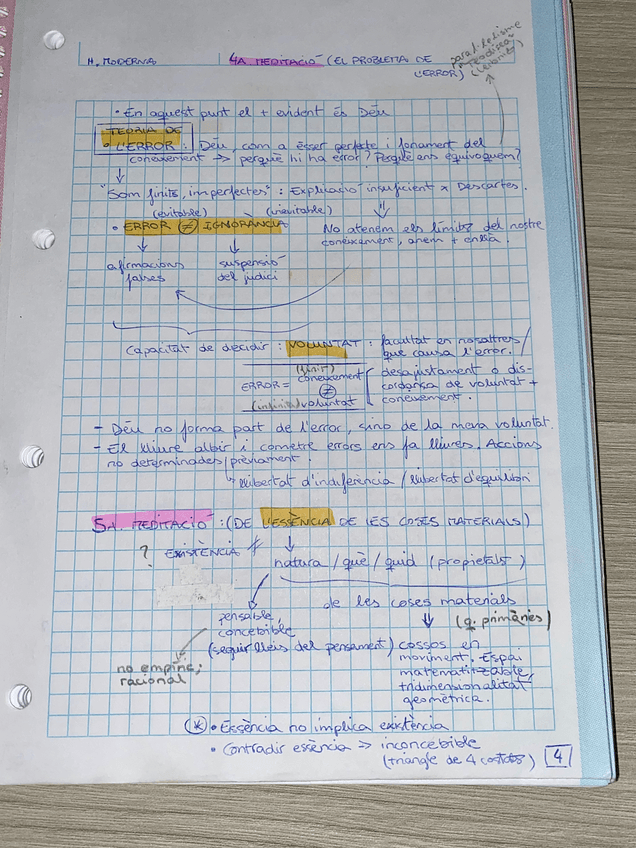 H. MODERNA
4A MEDITACIÓ (EL PROBLEMA DE L'ERROR)
(Leibniz)
• En aquest punt el + evident és Déu
TEORIA DE
• L'ERROR : Déu, com a ésser perfecte i fonament del
coneixement → perquè hi ha error? Perquè ens equivoquem?
"Som finits, imperfectes" : Explicació insuficient x Descartes.
(evitable) (inevitable)
• ERROR ≠ IGNORÀNCIA
No atenem els límits del nostre
coneixement, anem + enllà.
afirmacions
falses
suspensió
del judici
Capacitat de decidir : VOLUNTAT : facultat en nosaltres /
que causa l'error.
(finit)
ERROR = coneixement
≠
(infinita) voluntat
desajustament o dis-
cordansa de voluntat +
coneixement.
- Déu no forma part de l'error, sino de la meva voluntat.
- El lliure albir i cometre errors ens fa lliures. Accions
no determinades prèviament.
↳ llibertat d'indiferència / llibertat d'equilibri
5A. MEDITACIÓ : (DE L'ESSÈNCIA DE LES COSES MATERIALS)
? EXISTÈNCIA ≠
natura / què / quid (propietats)
de les coses materials
pensable,
concebible
(seguir lleis del pensament)
(q. primàries)
cossos en
moviment. Espai
matematitzable,
tridimensionalitat
geomètrica.
no empíric;
racional
(*) • Essència no implica existència
• Contradir essència => inconcebible
(triangle de 4 costats)
4